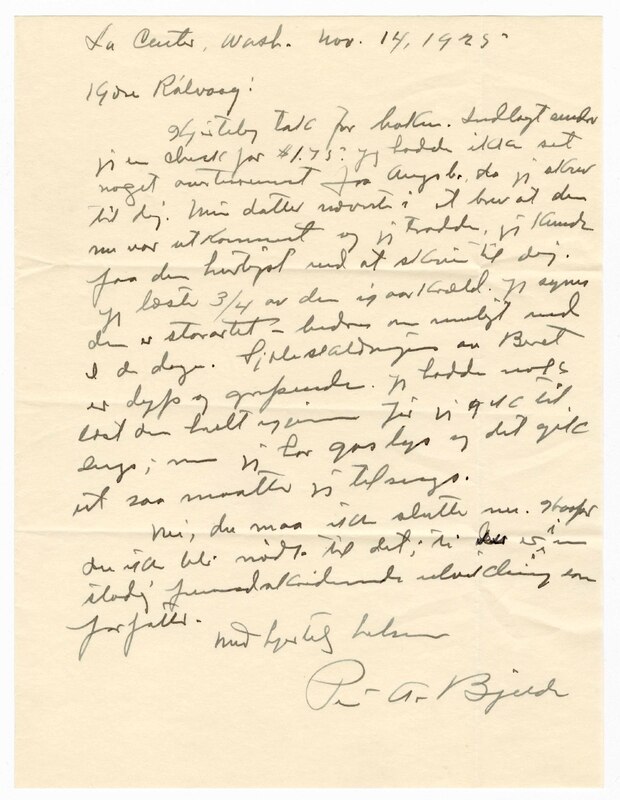 La Center, Wash. Nov. 14, 1925
Kjære Rölvaag!
Hjertelig tak for boken. Indlagt sender
jeg en check for $1.75. Jeg hadde ikke set
noget avertisement fra Augsb. da jeg skrev
til dig. Min datter nævnte i et brev at den
nu var utkommet og jeg trodde, jeg kunde
faa den hurtigst ved at skrive til dig.
Jeg læste 3/4 av den igaarkvæld. Jeg synes
den er storartet – bedre om muligt end
I de dage. Sjæleskildringen av Beret
er dyp og gripende. Jeg hadde nok
læst den helt igjennem før jeg gik til
sengs; men jeg har gas lys og det gik
ut saa maatte jeg tilsengs.
Nei, du maa ikke slutte nu. Haaper
du ikke blir nødt til det; ti du er i en
stadig fremadskridende utvikling som
forfatter.
Med hjertelig hilsen
Peter A. Bjelde